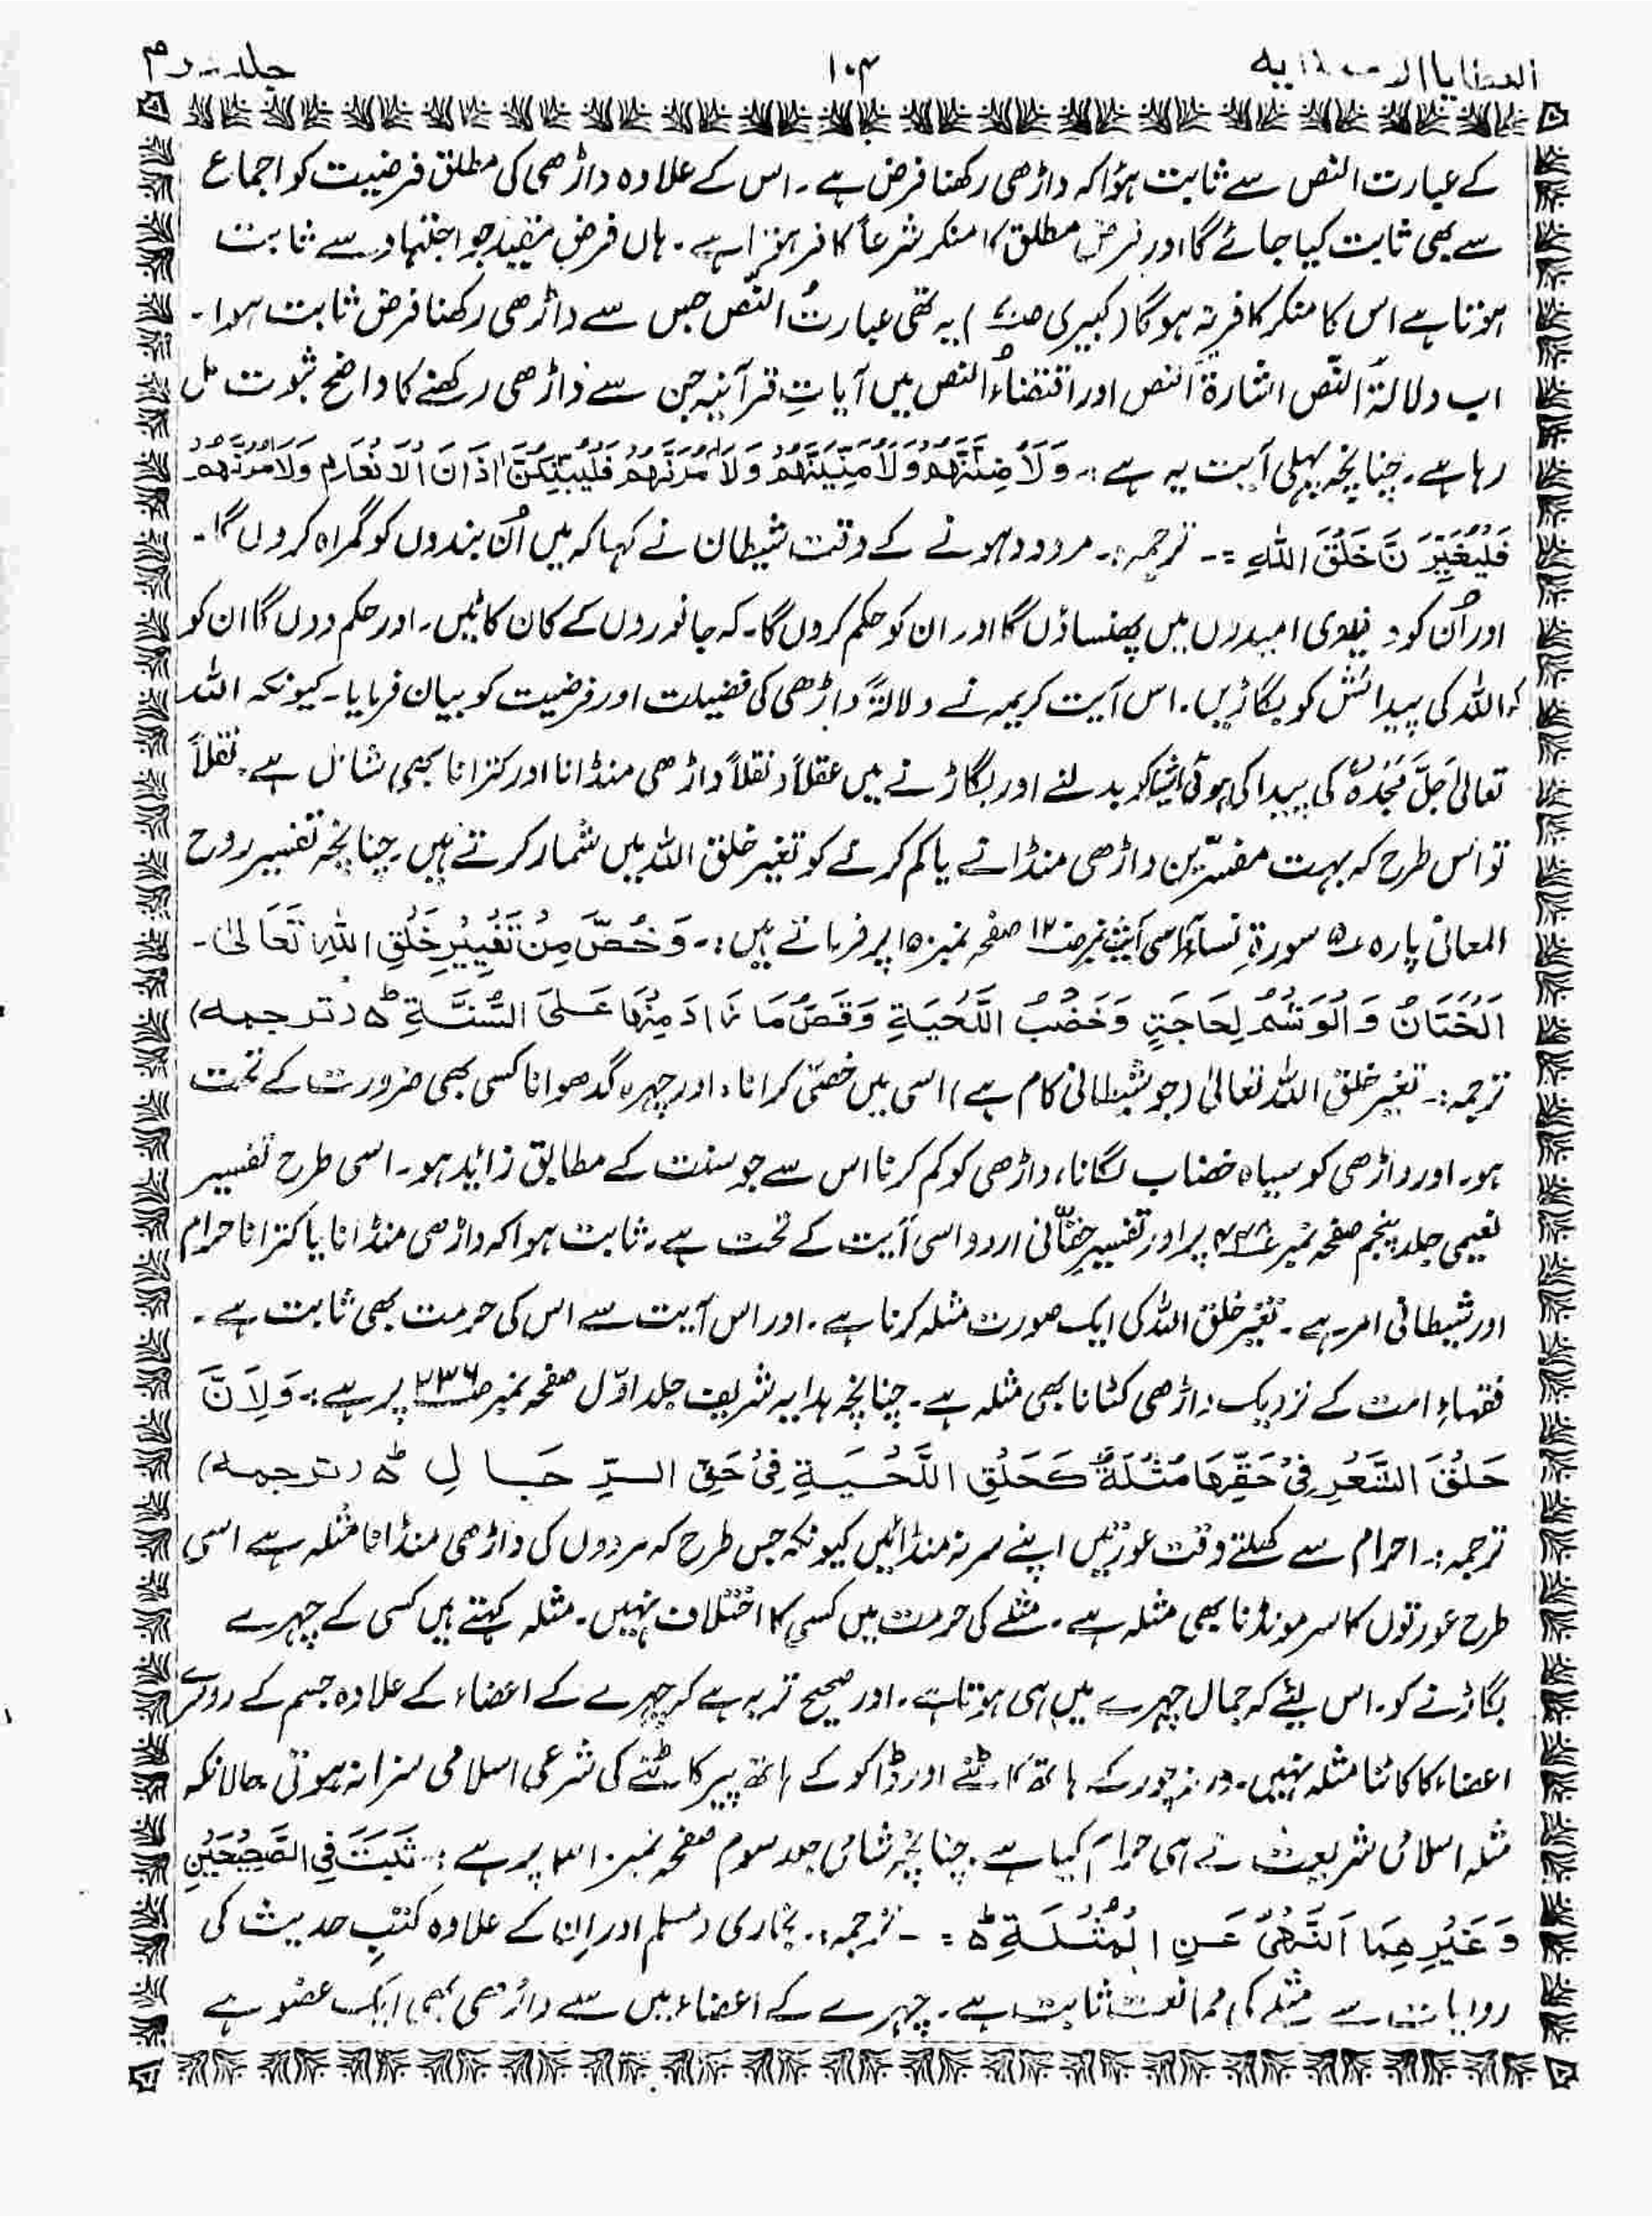 جلد دوم ۱۰۴ العطایا الاحمدیہ
کے عبارت النص سے ثابت ہؤا کہ داڑھی رکھنا فرض ہے۔ اس کے علاوہ داڑھی کی مطلق فرضیت کو اجماع
سے بھی ثابت کیا جائے گا اور فرض مطلق کا منکر شرعاً کافر ہوتا ہے۔ ہاں فرضِ مقید جو اجتہاد سے ثابت
ہوتا ہے اس کا منکر کافر نہ ہوگا (کبیری ) یہ تھی عبارتُ النّص جس سے داڑھی رکھنا فرض ثابت ہوا۔
اب دلالۃُ النّص اشارۃُ النص اور اقتضاءُ النص میں آیاتِ قرآنیہ جن سے داڑھی رکھنے کا واضح ثبوت مل
رہا ہے۔ چنانچہ پہلی آیت یہ ہے :۔ وَلَاُضِلَّنَّهُمْ وَلَاُمَنِّيَنَّهُمْ وَلَاٰمُرَنَّهُمْ فَلَيُبَتِّكُنَّ اٰذَانَ الْاَنْعَامِ وَلَاٰمُرَنَّهُمْ
فَلَيُغَيِّرُنَّ خَلْقَ اللهِ =۔ ترجمہ:۔ مردود ہونے کے وقت شیطان نے کہا کہ میں اُن بندوں کو گمراہ کروں گا۔
اور اُن کو دنیوی امیدوں میں پھنساؤں گا اور ان کو حکم کروں گا۔ کہ جانوروں کے کان کاٹیں۔ اور حکم دوں گا ان کو
کہ اللہ کی پیدائش کو بگاڑیں۔ اس آیت کریمہ نے دلالۃً داڑھی کی فضیلت اور فرضیت کو بیان فرمایا۔ کیونکہ اللہ
تعالیٰ جَلَّ مَجْدُہٗ کی پیدا کی ہوئی اشیا کو بدلنے اور بگاڑنے میں عقلاً و نقلاً داڑھی منڈانا اور کترانا بھی شامل ہے۔ نقلاً
تو اس طرح کہ بہت مفسّرین داڑھی منڈانے یا کم کرئے کو تغیر خلق اللہ میں شمار کرتے ہیں۔ چنانچہ تفسیر روح
المعانی پارہ ۵ سورۃِ نساء اسی آیت نمبر صفحہ نمبر ۱۵۰ پر فرماتے ہیں :۔ وَخُصَّ مِنْ تَغْيِيْرِ خَلْقِ اللهِ تَعَالىٰ۔
اَلْخَتَانُ وَالْوَشْمُ لِحَاجَةٍ وَخَضْبُ اللَّحْيَةِ وَقَصُّ مَا زَادَ مِنْهَا عَلَى السُّنَّةِ ط ۵ (ترجمہ)
ترجمہ:۔ تغیر خلق اللہ تعالیٰ (جو شیطانی کام ہے) اسی میں خصّی کرانا، اور چہرہ گدھوانا کسی بھی ضرورت کے تحت
ہو۔ اور داڑھی کو سیاہ خضاب لگانا، داڑھی کو کم کرنا اس سے جو سنت کے مطابق زائد ہو۔ اسی طرح تفسیر
نعیمی جلد پنجم صفحہ نمبر پر اور تفسیرِ حقّانی اردو اسی آیت کے تحت ہے۔ ثابت ہوا کہ داڑھی منڈانا یا کترانا حرام
اور شیطانی امر ہے۔ تغیر خلق اللہ کی ایک صورت مثلہ کرنا ہے۔ اور اس آیت سے اس کی حرمت بھی ثابت ہے۔
فقہاءِ امت کے نزدیک داڑھی کٹانا بھی مثلہ ہے۔ چنانچہ ہدایہ شریف جلد اوّل صفحہ نمبر ۲۳۶ پر ہے :۔ وَلِاَنَّ
حَلْقَ الشَّعْرِ فِیْ حَقِّهَا مُثْلَةٌ کَحَلْقِ اللَّحْيَةِ فِیْ حَقِّ الرِّجَالِ ط ۵ (ترجمہ)
ترجمہ:۔ احرام سے کھلتے وقت عورتیں اپنے سر نہ منڈائیں کیونکہ جس طرح کہ مردوں کی داڑھی منڈانا مُثلہ ہے اسی
طرح عورتوں کا سر مونڈنا بھی مثلہ ہے۔ مثلے کی حرمت میں کسی کا اختلاف نہیں۔ مثلہ کہتے ہیں کسی کے چہرے
بگاڑنے کو۔ اس لیئے کہ جمال چہرے میں ہی ہوتا ہے۔ اور صحیح تر یہ ہے کہ چہرے کے اعضاء کے علاوہ جسم کے دوسرے
اعضاء کا کاٹنا مثلہ نہیں۔ ورنہ چور کے ہاتھ کاٹنے اور ڈاکو کے ہاتھ پیر کاٹنے کی شرعی اسلامی سزا نہ ہوتی حالانکہ
مثلہ اسلامی شریعت نے ہی حرام کیا ہے۔ چنانچہ شامی جلد سوم صفحہ نمبر پر ہے :۔ ثَبَتَ فِی الصَّحِيْحَيْنِ
وَغَيْرِهِمَا اَلنَّهْیُ عَنِ الْمُثْلَةِ ط ۵ =۔ ترجمہ:۔ بخاری و مسلم اور اِن کے علاوہ کتبِ حدیث کی
روایات سے مثلے کی ممانعت ثابت ہے۔ چہرے کے اعضاء میں سے داڑھی بھی ایک عضو ہے